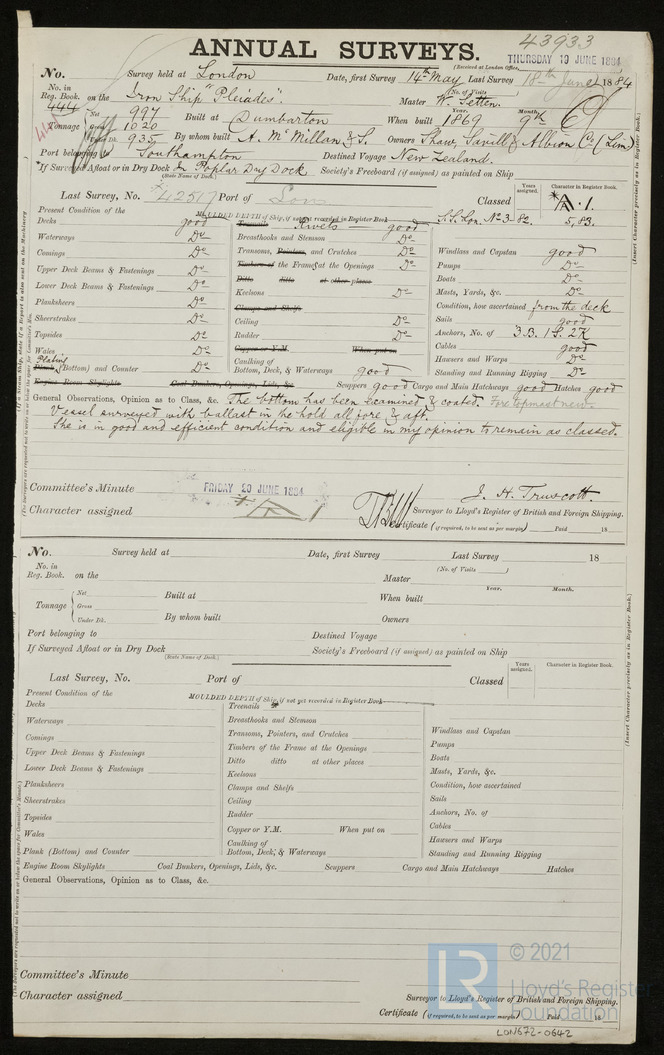 43933
ANNUAL SURVEYS.
(Received at London Office, THURSDAY 19 JUNE 1884
No. Survey held at London Date, first Survey 14th May Last Survey 18th June 1884
No. in Reg. Book. 444 on the Iron Ship "Pleiades". Master W. Setten. (No. of Visits )
Tonnage Net 997 Built at Dumbarton When built 1869 Year. Month. 9th
Gross 1020
Under Dk. 935 By whom built A. McMillan & S. Owners Shaw, Savill & Albion Co. (Lim)
Port belonging to Southampton Destined Voyage New Zealand.
If Surveyed Afloat or in Dry Dock In Poplar Dry Dock Society's Freeboard (if assigned) as painted on Ship
(State Name of Dock.)
Last Survey, No. 42517 Port of Lon Classed Years assigned. Character in Register Book. A.1.
S.S. Lon. No 3-82. 5,83.
Present Condition of the MOULDED DEPTH of Ship, if not yet recorded in Register Book
Decks good Treenails Rivets good
Waterways Do Breasthooks and Stemson Do
Comings Do Transoms, Pointers, and Crutches Do Windlass and Capstan good
Upper Deck Beams & Fastenings Do Timbers of the Frames at the Openings Do Pumps Do
Lower Deck Beams & Fastenings Do Ditto ditto at other places Boats Do
Planksheers Do Keelsons Do Masts, Yards, &c. Do
Sheerstrakes Do Clamps and Shelfs Condition, how ascertained from the deck
Topsides Do Ceiling Do Sails good
Wales Do Rudder Do Anchors, No. of 3.B. 1 S. 2K
Plank Plating (Bottom) and Counter Do Copper or Y.M. When put on Cables good
Caulking of Bottom, Deck, & Waterways good Hawsers and Warps Do
Standing and Running Rigging Do
Engine Room Skylights Coal Bunkers, Openings, Lids, &c. Scuppers good Cargo and Main Hatchways good Hatches good
General Observations, Opinion as to Class, &c. The bottom has been examined & coated. Foretopmast new.
Vessel surveyed with ballast in the hold all fore & aft.
She is in good and efficient condition and eligible in my opinion to remain as classed.
Committee's Minute FRIDAY 20 JUNE 1884
J. H. Truscott.
Character assigned A 1 Surveyor to Lloyd's Register of British and Foreign Shipping.
Certificate (if required, to be sent as per margin) Paid 18
No. Survey held at Date, first Survey Last Survey 18
No. in Reg. Book. on the Master (No. of Visits )
Year. Month.
Tonnage Net Built at When built
Gross
Under Dk. By whom built Owners
Port belonging to Destined Voyage
If Surveyed Afloat or in Dry Dock Society's Freeboard (if assigned) as painted on Ship
(State Name of Dock.)
Last Survey, No. Port of Classed Years assigned. Character in Register Book.
Present Condition of the MOULDED DEPTH of Ship, if not yet recorded in Register Book
Decks Treenails
Waterways Breasthooks and Stemson
Comings Transoms, Pointers, and Crutches Windlass and Capstan
Upper Deck Beams & Fastenings Timbers of the Frame at the Openings Pumps
Lower Deck Beams & Fastenings Ditto ditto at other places Boats
Planksheers Keelsons Masts, Yards, &c.
Sheerstrakes Clamps and Shelfs Condition, how ascertained
Topsides Ceiling Sails
Wales Rudder Anchors, No. of
Plank (Bottom) and Counter Copper or Y.M. When put on Cables
Caulking of Bottom, Deck, & Waterways Hawsers and Warps
Standing and Running Rigging
Engine Room Skylights Coal Bunkers, Openings, Lids, &c. Scuppers Cargo and Main Hatchways Hatches
General Observations, Opinion as to Class, &c.
Committee's Minute
Character assigned Surveyor to Lloyd's Register of British and Foreign Shipping.
Certificate (if required, to be sent as per margin) Paid 18
LR © 2021 Lloyd's Register Foundation
LON672-0642
(Insert Character precisely as in Register Book.)
(Insert Character precisely as in Register Book.)